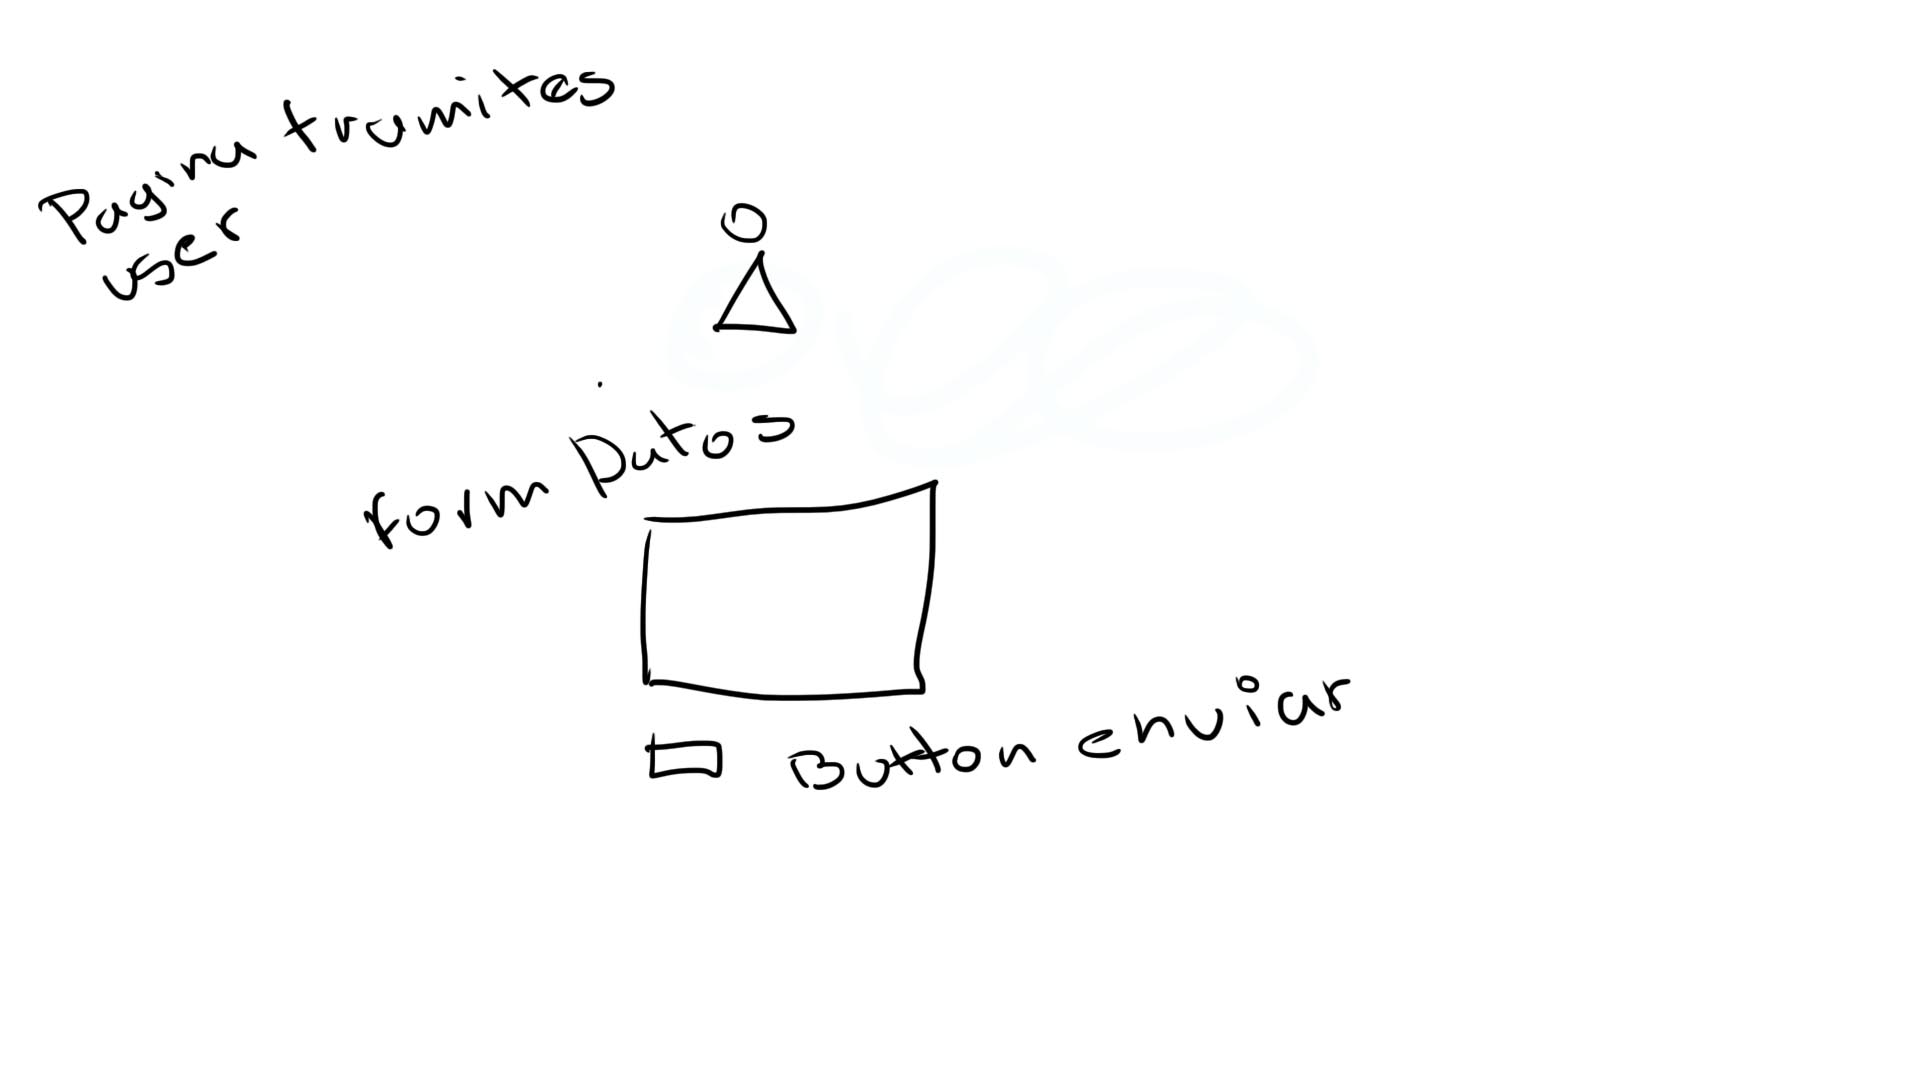 Pagina tramites
user
form Datos
Button enviar